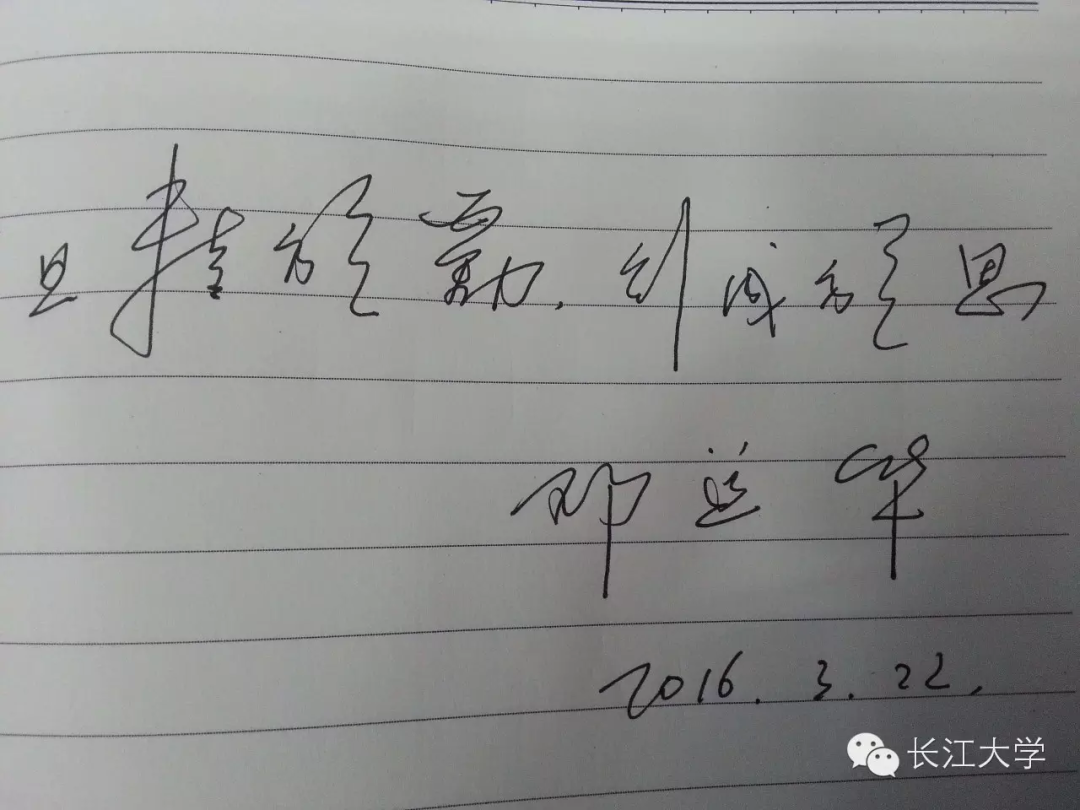 业精於勤,行成於思
邓道华
2016.3.22.
长江大学